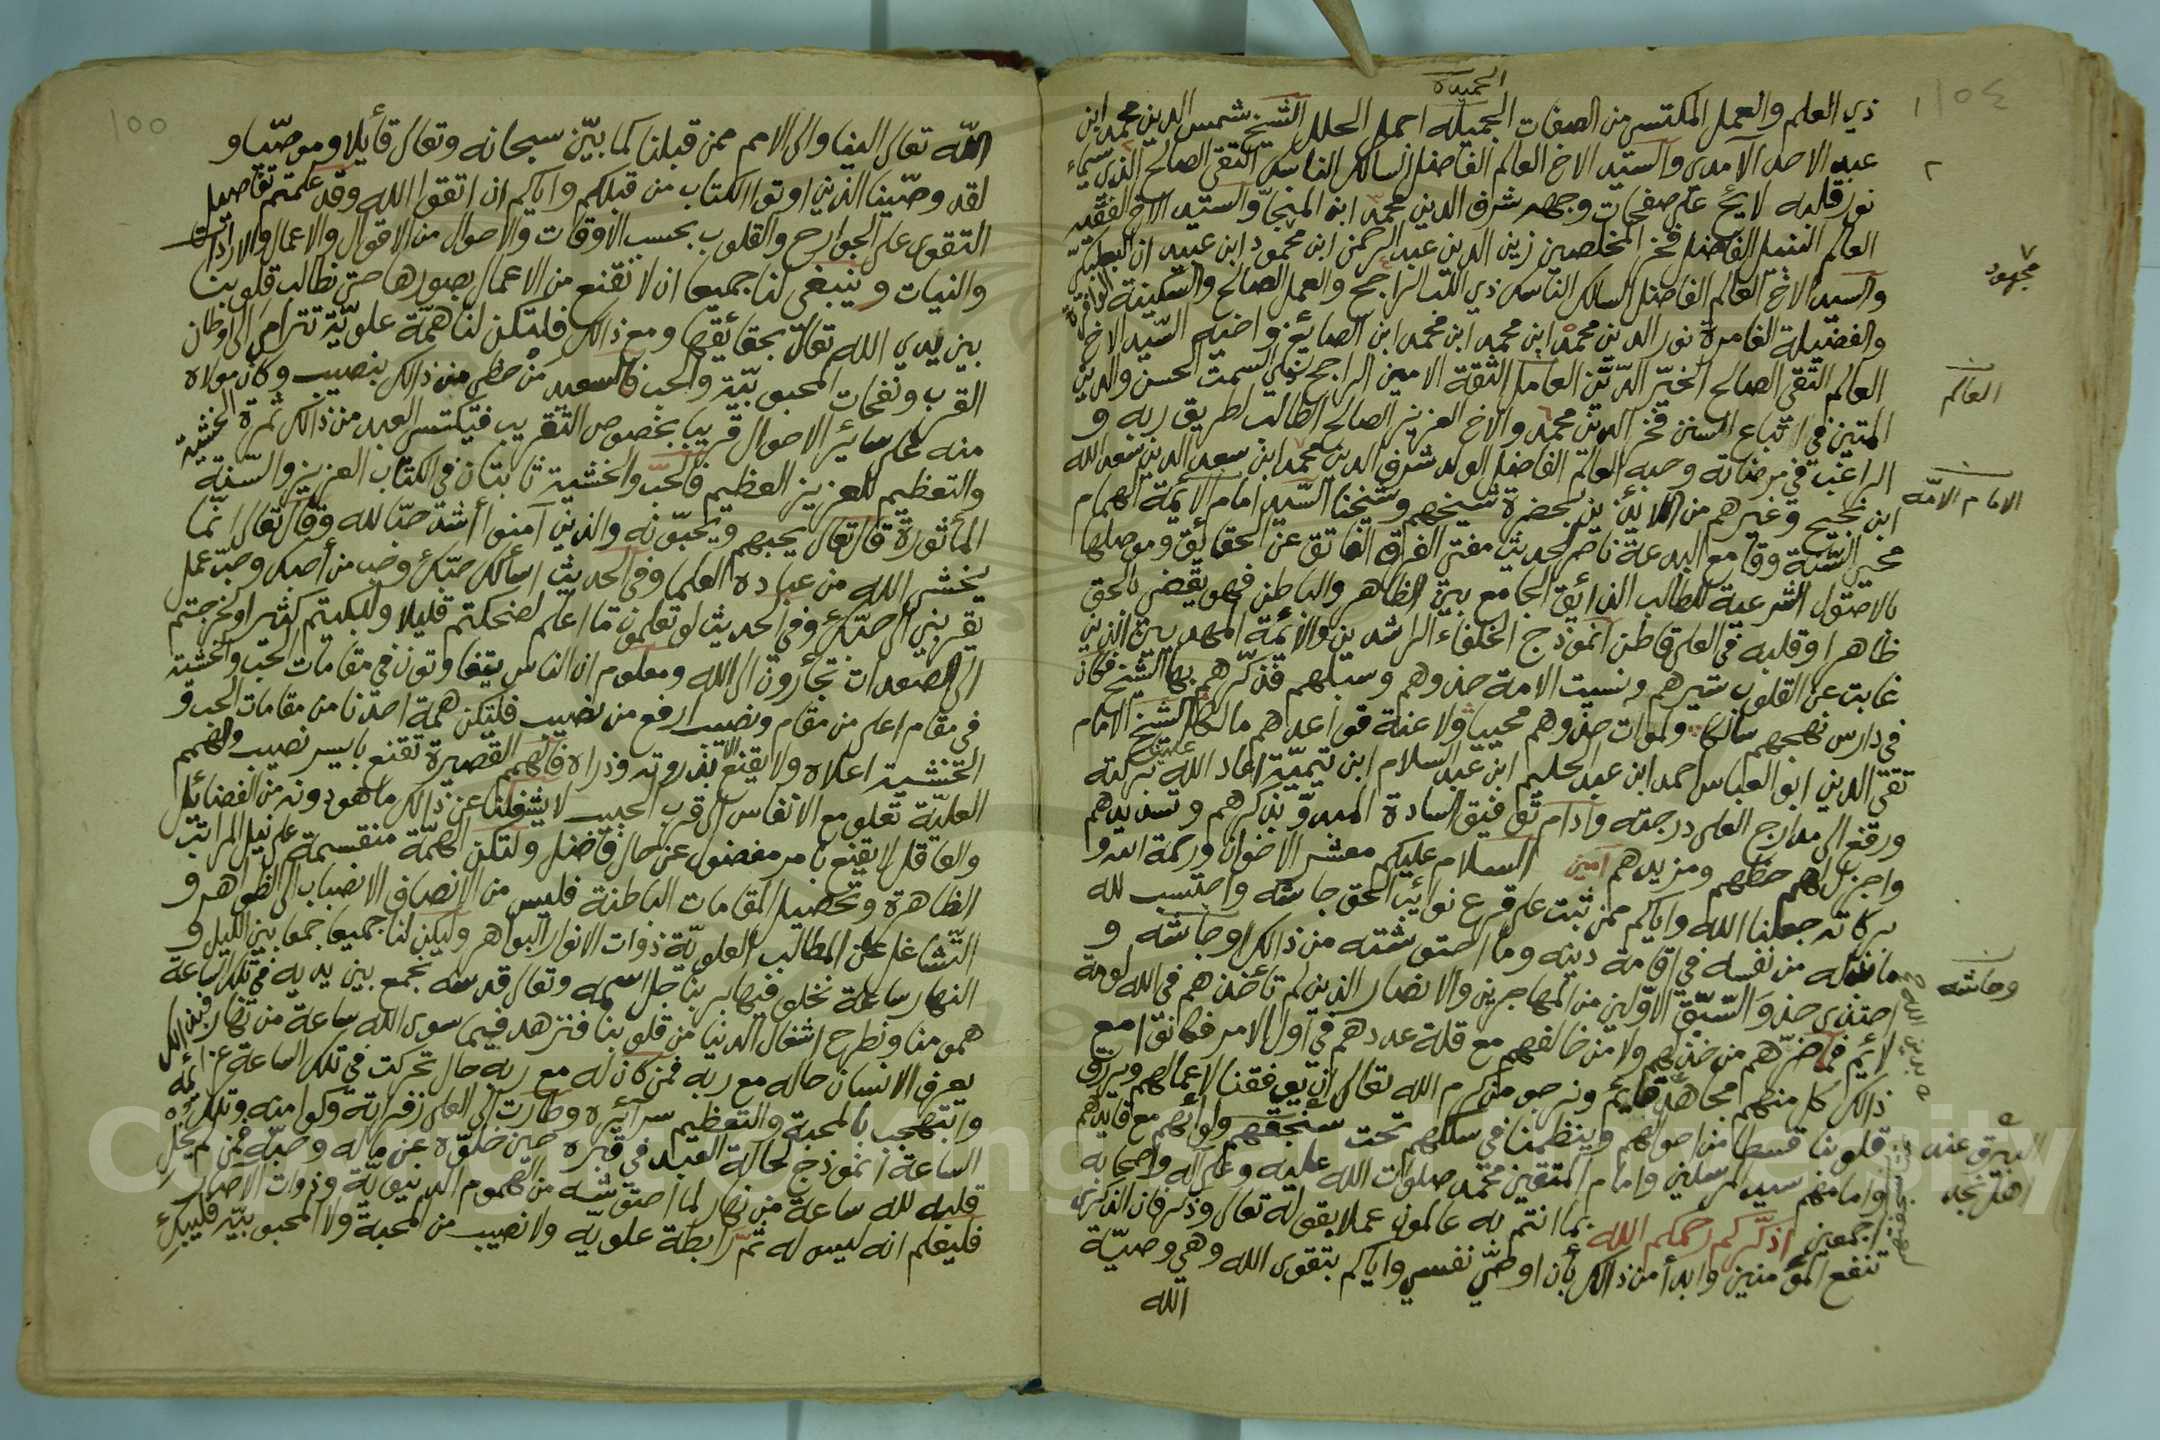 ١٥٤
الحميدة
ذي العلم والعمل المكتسي من الصفات الجميلة اجمل الحلل الشيخ شمس الدين محمد ابن
عبد الاحد الآمدي والسيد الاخ العالم الفاضل السالك الناسك التقي الصالح الذي سيماء
نور قلبه لايح على صفحات وجهه شرف الدين محمد ابن المنجا والسيد الاخ الفقيه
العالم النبيل الفاضل فخر المخلصين زين الدين عبد الرحمن ابن محمود ابن عبيد ان البعلبكي
والسيد الاخ العالم الفاضل السالك الناسك ذي اللب الراجح والعمل الصالح والسكينة الوافرة
والفضيلة الغامرة نور الدين محمد ابن محمد ابن محمد ابن الصايغ واخيه السيد الاخ
العالم التقي الصالح الخيّر الديّن العامل الثقة الامين الراجح ذي السمت الحسن والدين
المتين في اتباع السنن فخر الدين محمد والاخ العزيز الصالح الطالب لطريق ربه و
الراغب في مرضاته وحبه العالم الفاضل الولد شرف الدين محمد ابن سعد الدين سعد الله
ابن بخيح وغيرهم من اللائذين بحضرة شيخهم وشيخنا السيد امام الأئمة الهمام
محيي السنة وقامع البدعة ناصر الحديث مفتي الفرق الفاتق عن الحقائق وموصلها
بالاصول الشرعية للطالب الذائق الجامع بين الظاهر والباطن فهو يقضي بالحق
ظاهرا وقلبه في العلى قاطن انموذج الخلفاء الراشدين والائمة المهديين الذين
غابت عن القلوب سيرهم ونسيت الامة حذوهم وسبلهم فذكرهم بها الشيخ فكان
في دارس نهجهم سالكا ولموات حذوهم محييا ولاعنة قواعدهم مالكا الشيخ الامام
تقي الدين ابو العباس احمد ابن عبد الحليم ابن عبد السلام ابن تيميّة اعاد الله علينا بركته
ورفع الى مدارج العلى درجته وادام توفيق السادة المبدوّ بذكرهم وتسديدهم
واجزل لهم حظهم ومزيدهم آمين السلام عليكم معشر الاخوان ورحمة الله و
بركاته جعلنا الله واياكم ممن ثبت على قرع نوائب الحق جاشه واحتسب لله
ما بذله من نفسه في اقامة دينه وما احتوشته من ذالك وحاشه و
احتذى حذو السّبّق الاوّلين من المهاجرين والانصار الذين لم تأخذهم في الله لومة
لائم فما ضرّهم من خذلهم ولا من خالفهم مع قلة عددهم في اول الامر فكانوا مع
ذالك كل منهم مجاهد قايم ونرجو من كرم الله تعالى ان يوفقنا لاعمالهم ويرزق
قلوبنا قسطا من احوالهم وينظمنا في سلكهم تحت سنجقهم ولوائهم مع قايدهم
وامامهم سيد المرسلين وامام المتقين محمد صلوات الله عليه وعلى آله واصحابه
اجمعين اذكّركم رحمكم الله بما انتم به عالمون عملا بقوله تعالى وذكر فان الذكرى
تنفع المؤمنين وابدأ من ذالك بأن اوصّي نفسي واياكم بتقوى الله وهي وصيّة
الله
محمود
العالم
الامام الامّه
وحاشه
١٥٥
الله تعالى الينا والى الامم ممن قبلنا كما بيّن سبحانه وتعالى قائلا وموصيّا و
لقد وصّينا الذين اوتوا الكتاب من قبلكم واياكم ان اتقوا الله وقد علمتم تفاصيل
التقوى على الجوارح والقلوب بحسب الاوقات والاحوال من الاقوال والاعمال والارادات
والنيات وينبغي لنا جميعا ان لا نقنع من الاعمال بصورها حتى نطالب قلوبنا
بين يدي الله تعالى بحقائقها ومع ذالك فلتكن لنا همّة علويّة تترامى الى اوطان
القرب ونفحات المحبوبيّة والحب فالسعيد من حظي من ذالك بنصيب وكان مولاه
منه على ساير الاحوال قريبا بخصوص التقريب فيكتسي العبد من ذالك ثمرة الخشية
والتعظيم للعزيز العظيم فالحبّ والخشية ثابتان في الكتاب العزيز والسّنة
المأثورة قال تعالى يحبهم ويحبّونه والذين آمنوا اشدّ حبّا لله وقال تعالى انّما
يخشى الله من عباده العلما وفي الحديث اسألك حبّك وحب من أحبك وحبّ عمل
يقربني الى حبّك وفي الحديث لو تعلمون ما اعلم لضحكتم قليلا ولبكيتم كثيرا ولخرجتم
الى الصعدات تجأرون الى الله ومعلوم ان الناس يتفاوتون في مقامات الحبّ والخشية
في مقام اعلى من مقام ونصيب ارفع من نصيب فلتكن همة احدنا من مقامات الحب و
الخشية اعلاه ولا يقنع الا بذروته وذراه فالهمم القصيرة تقنع بايسر نصيب والهمم
العليّة تعلو مع الانفاس الى قرب الحبيب لا يشغلنا عن ذالك ما هو دونه من الفضائل
والعاقل لا يقنع بامر مفضول عن حال فاضل ولتكن الهمّة منقسمة على نيل المراتب
الظاهرة وتحصيل المقامات الباطنة فليس من الانصاف الانصباب الى الظواهر و
التشاغل عن المطالب العلويّة ذوات الانوار البواهر وليكن لنا جميعا جمعا بين الليل و
النهار ساعة نخلو فيها بربنا جل اسمه وتعالى قدسه نجمع بين يديه في تلك الساعة
همومنا ونطرح اشغال الدنيا من قلوبنا فنزهد فيما سوى الله ساعة من نهار فبذالك
يعرف الانسان حاله مع ربه فمن كان له مع ربه حال تحركت في تلك الساعة عزائمه
وابتهجب بالمحبة والتعظيم سرائره وطارت الى العلى زفراته وكوامنه وتلك
الساعة انموذج لحالة العبد في قبره حين خلوّه عن ماله وحبّه فمن لم يخل
قلبه لله ساعة من نهار لما احتوشه من الهموم الدنيويّة وذوات الآصار
فليعلم انه ليس له ثمّ رابطة علويّه ولا نصيب من المحبة ولا المحبوبيّة فليبك